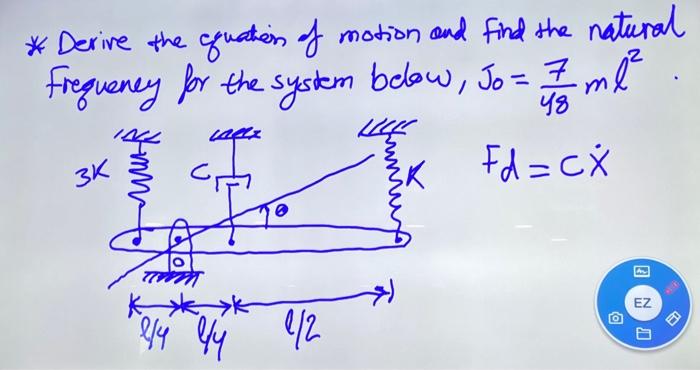 * Derive the equation of motion and find the natural
frequency for the system below, J₀ = 7/48 ml² .
3K
C
θ
K
Fd = cẋ
O
l/4 l/4 l/2
EZ